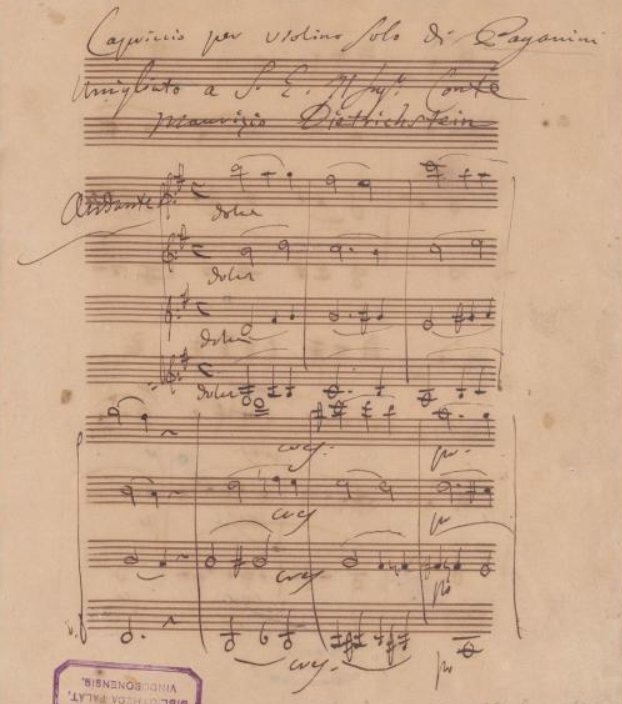 Capriccio per violino Solo di Paganini
umigliato a S. E. Il Sigr. Conte
Maurizio Dietrichstein
Andante
dolce
dolce
dolce
dolce
cresc.
po.
cresc
po
cresc
po
cresc.
po
BIBLIOTHECA PALAT.
VINDOBONENSIS.